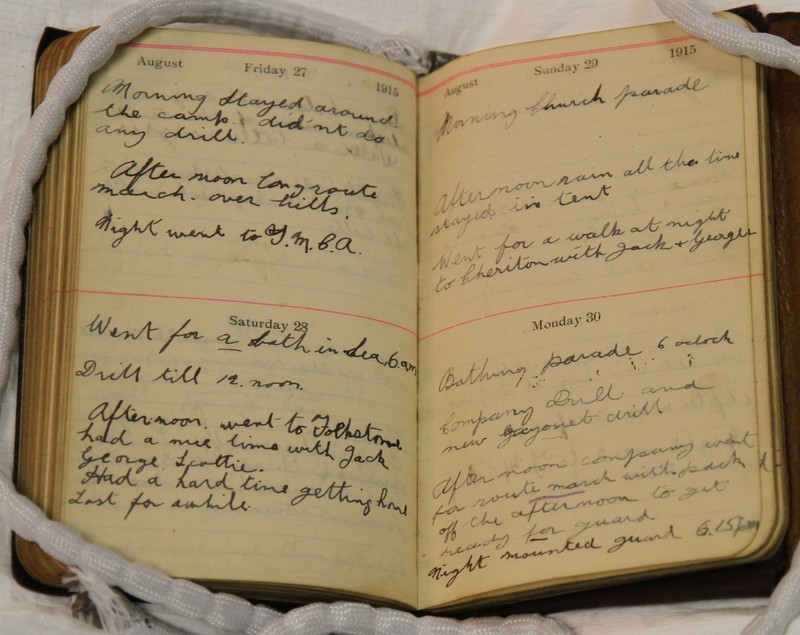 August Friday 27 1915
Morning stayed around
the camp. did'nt do
any drill.
After noon long route
march. over hills.
Night went to Y.M.C.A.
Saturday 28
Went for a bath in sea, 6. am
Drill till 12. noon.
Afternoon. went to Folkstone
had a nice time with Jack
George, Scottie.
Had a hard time getting home
Lost for awhile.
August Sunday 29 1915
Morning Church parade
Afternoon rain all the time
stayed in tent
Went for a walk at night
to Cheriton with Jack + George
Monday 30
Bathing parade 6 oclock
Company Drill and
new bayonet drill
After noon company went
for route march with pack
off the afternoon to get
ready for guard
Night mounted guard 6.15 pm